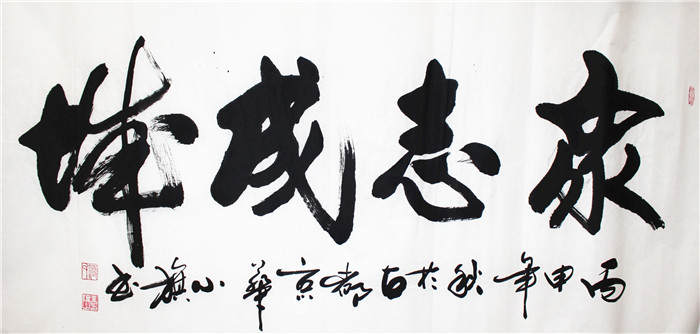 衆志成城
丙申年秋於古都京華小旗书